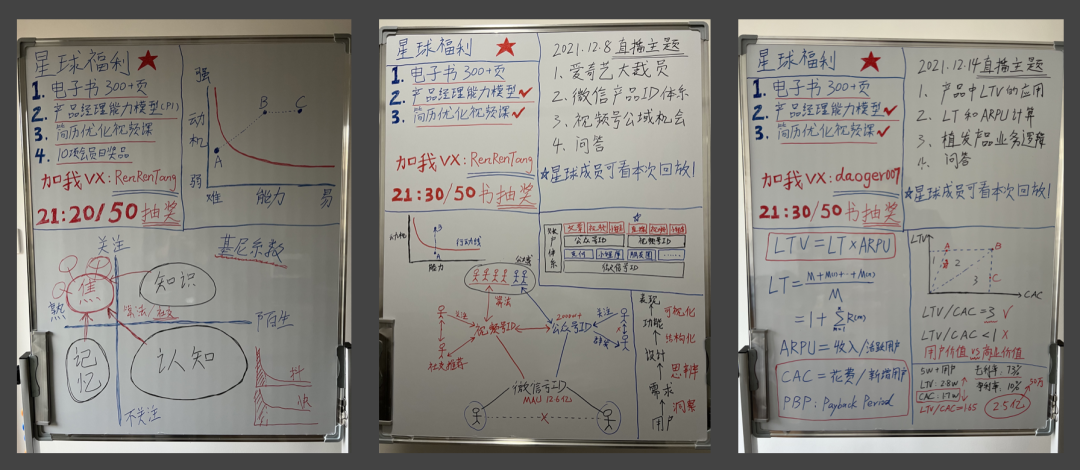 星球福利
1. 电子书 300+页
2. 产品经理能力模型(P1)
3. 简历优化视频课
4. 10项会员日奖品
加我VX: RenRenTang
21:20/50 抽奖
强
动机
弱
A
B
C
难
能力
易
关注
基尼系数
焦
知识
算法/社交
熟
陌生
记忆
认知
不关注
抖
快
星球福利
1. 电子书 300+页
2. 产品经理能力模型✓
3. 简历优化视频课✓
加我VX: RenRenTang
21:30/50 书抽奖
2021.12.8 直播主题
1、爱奇艺大裁员
2、微信产品ID体系
3、视频号公域机会
4、问答
☆星球成员可看本次回放!
动机
B
A
行动线
能力
账户体系
文章
视频
直播
公众号ID
视频号ID
支付
小程序
朋友圈
……
微信号ID
算法
关注
视频号ID
社交推荐
2000w+
公众号ID
关注
微信号ID
MAU 12.6亿
X
表现
功能
设计
需求
用户
可视化
结构化
思辨
洞察
星球福利
1. 电子书 300+页
2. 产品经理能力模型✓
3. 简历优化视频课✓
加我VX: daoger007
21:30/50 书抽奖
2021.12.14 直播主题
1. 产品中LTV的应用
2. LT和ARPU计算
3. 植发产品业务逻辑
4. 问答
☆星球成员可看本次回放!
LTV = LT×ARPU
ARPU = 收入/活跃用户
CAC = 花费/新增用户
PBP: Payback Period
LTV
A
B
1
2
3
C
CAC
LTV/CAC=3 ✓
LTV/CAC<1 X
用户价值 VS 商业价值
5W+用户
毛利率: 73%
LTV: 2.8w
净利率: 10%
CAC: 1.7w
LTV/CAC=1.65
2.5亿
50万